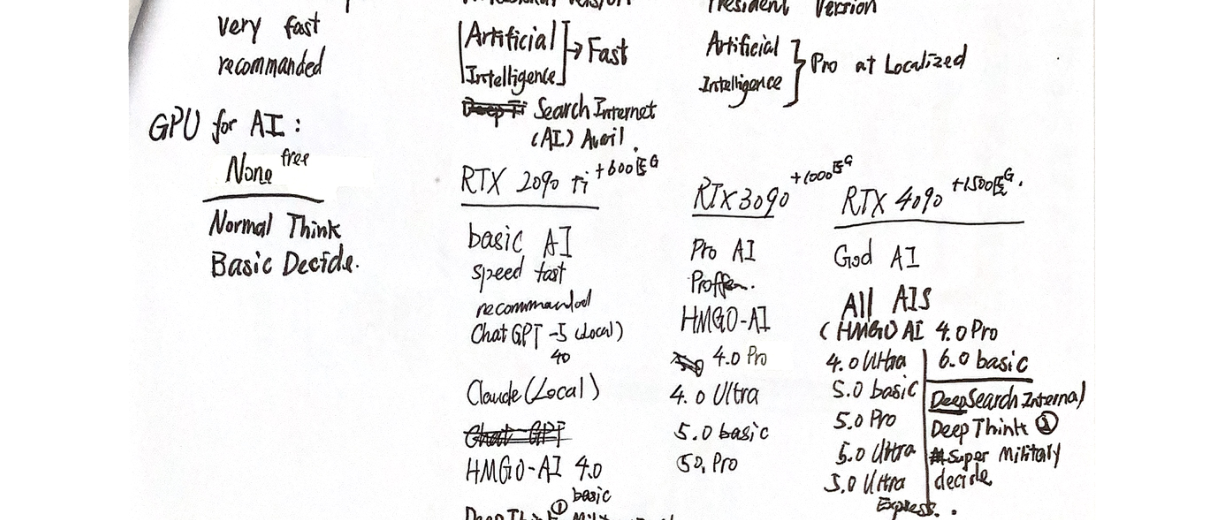 very fast
recommanded
Version
Artificial
Intelligence
Fast
Search Internet
(AI) Avail.
President Version
Artificial
Intelligence
Pro at Localized
GPU for AI:
None free
Normal Think
Basic Decide.
RTX 2090 Ti +600
basic AI
speed fast
recommanded
ChatGPT -5 (Local)
4o
Claude (Local)
Chat GPT
HMGO-AI 4.0
basic
DeepThink ①
RTX 3090 +1000
Pro AI
HMGO-AI
4.0 Pro
4.0 Ultra
5.0 basic
5.0. Pro
RTX 4090 +1500
God AI
All AIs
(HMGO AI 4.0 Pro
4.0 Ultra
5.0 basic
5.0 Pro
5.0 Ultra
5.0 Ultra
Express.
6.0 basic
DeepSearch Internal
DeepThink ①
Super Military
decide